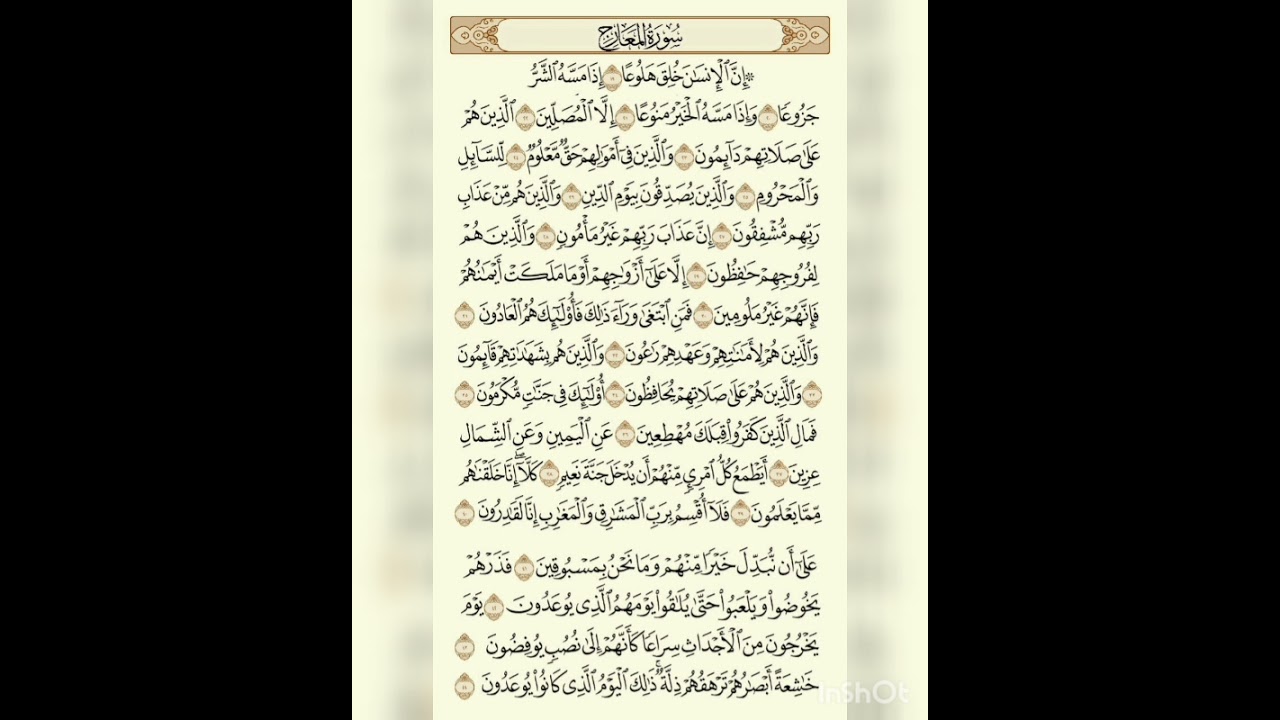 سُورَةُ المَعَارِجِ
۞ إِنَّ ٱلْإِنسَٰنَ خُلِقَ هَلُوعًا ١٩ إِذَا مَسَّهُ ٱلشَّرُّ
جَزُوعًا ٢٠ وَإِذَا مَسَّهُ ٱلْخَيْرُ مَنُوعًا ٢١ إِلَّا ٱلْمُصَلِّينَ ٢٢ ٱلَّذِينَ هُمْ
عَلَىٰ صَلَاتِهِمْ دَآئِمُونَ ٢٣ وَٱلَّذِينَ فِىٓ أَمْوَٰلِهِمْ حَقٌّ مَّعْلُومٌ ٢٤ لِّلسَّآئِلِ
وَٱلْمَحْرُومِ ٢٥ وَٱلَّذِينَ يُصَدِّقُونَ بِيَوْمِ ٱلدِّينِ ٢٦ وَٱلَّذِينَ هُم مِّنْ عَذَابِ
رَبِّهِم مُّشْفِقُونَ ٢٧ إِنَّ عَذَابَ رَبِّهِمْ غَيْرُ مَأْمُونٍ ٢٨ وَٱلَّذِينَ هُمْ
لِفُرُوجِهِمْ حَٰفِظُونَ ٢٩ إِلَّا عَلَىٰٓ أَزْوَٰجِهِمْ أَوْ مَا مَلَكَتْ أَيْمَٰنُهُمْ
فَإِنَّهُمْ غَيْرُ مَلُومِينَ ٣٠ فَمَنِ ٱبْتَغَىٰ وَرَآءَ ذَٰلِكَ فَأُو۟لَٰٓئِكَ هُمُ ٱلْعَادُونَ ٣١
وَٱلَّذِينَ هُمْ لِأَمَٰنَٰتِهِمْ وَعَهْدِهِمْ رَٰعُونَ ٣٢ وَٱلَّذِينَ هُم بِشَهَٰدَٰتِهِمْ قَآئِمُونَ
٣٣ وَٱلَّذِينَ هُمْ عَلَىٰ صَلَاتِهِمْ يُحَافِظُونَ ٣٤ أُو۟لَٰٓئِكَ فِى جَنَّٰتٍ مُّكْرَمُونَ ٣٥
فَمَالِ ٱلَّذِينَ كَفَرُوا۟ قِبَلَكَ مُهْطِعِينَ ٣٦ عَنِ ٱلْيَمِينِ وَعَنِ ٱلشِّمَالِ
عِزِينَ ٣٧ أَيَطْمَعُ كُلُّ ٱمْرِئٍ مِّنْهُمْ أَن يُدْخَلَ جَنَّةَ نَعِيمٍ ٣٨ كَلَّآ ۖ إِنَّا خَلَقْنَٰهُم
مِّمَّا يَعْلَمُونَ ٣٩ فَلَآ أُقْسِمُ بِرَبِّ ٱلْمَشَٰرِقِ وَٱلْمَغَٰرِبِ إِنَّا لَقَٰدِرُونَ ٤٠
عَلَىٰٓ أَن نُّبَدِّلَ خَيْرًا مِّنْهُمْ وَمَا نَحْنُ بِمَسْبُوقِينَ ٤١ فَذَرْهُمْ
يَخُوضُوا۟ وَيَلْعَبُوا۟ حَتَّىٰ يُلَٰقُوا۟ يَوْمَهُمُ ٱلَّذِى يُوعَدُونَ ٤٢ يَوْمَ
يَخْرُجُونَ مِنَ ٱلْأَجْدَاثِ سِرَاعًا كَأَنَّهُمْ إِلَىٰ نُصُبٍ يُوفِضُونَ ٤٣
خَٰشِعَةً أَبْصَٰرُهُمْ تَرْهَقُهُمْ ذِلَّةٌ ۚ ذَٰلِكَ ٱلْيَوْمُ ٱلَّذِى كَانُوا۟ يُوعَدُونَ ٤٤
InShOt